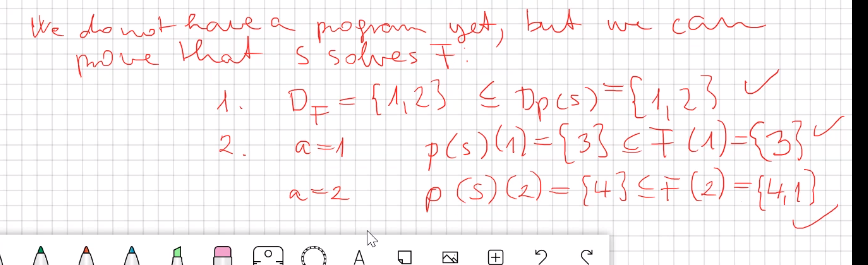 We do not have a program yet, but we can
prove that S solves F:
1. D_F = {1,2} ⊆ D_p(s) = {1,2} ✓
2. a=1 p(s)(1)={3} ⊆ F(1)={3} ✓
a=2 p(S)(2)={4} ⊆ F(2)={4,1} ✓
A